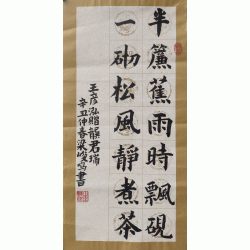 半簾蕉雨時飄硯
一砌松風靜煮茶
王彥泓贈韻君瑞
辛丑仲春梁峻鳴書